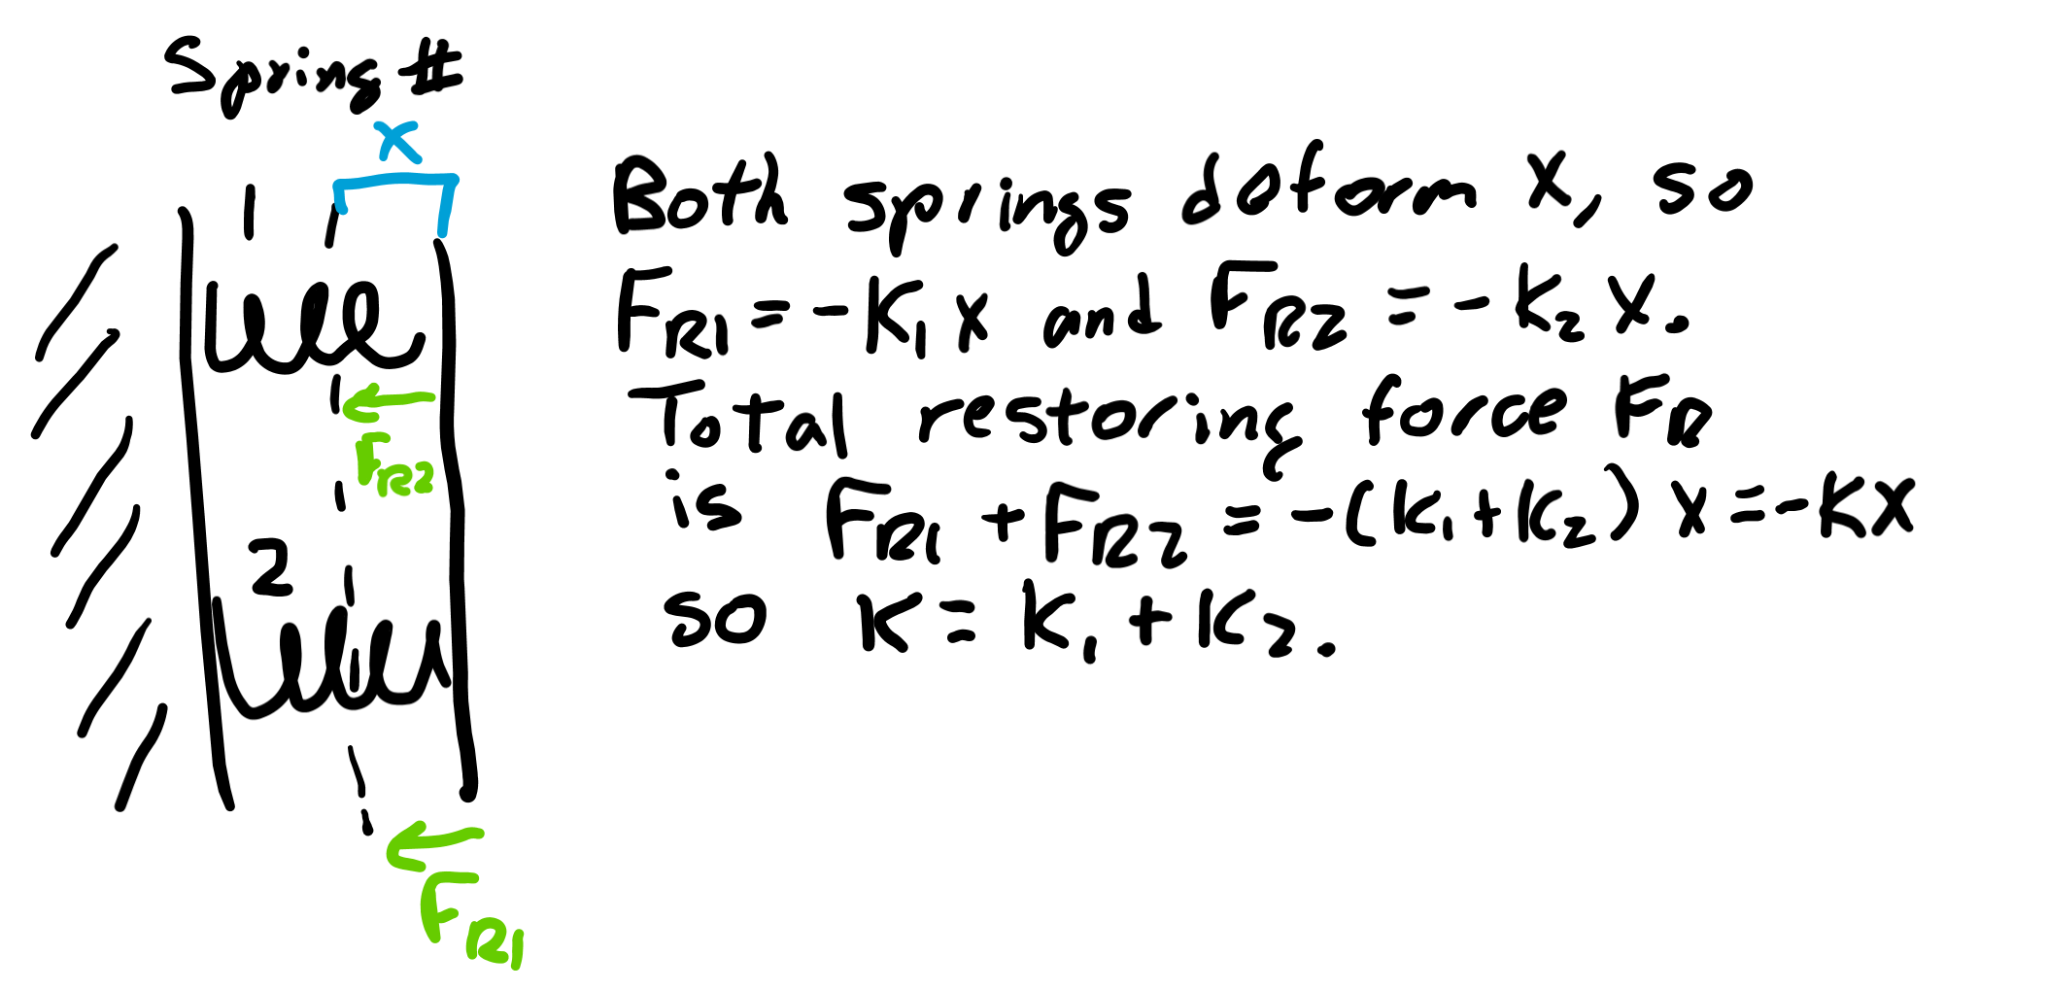 Spring #
x
1
FR2
2
FR1
Both springs deform x, so
FR1 = -K1 x and FR2 = -K2 x.
Total restoring force FR
is FR1 + FR2 = -(K1+K2) x = -Kx
so K = K1 + K2.